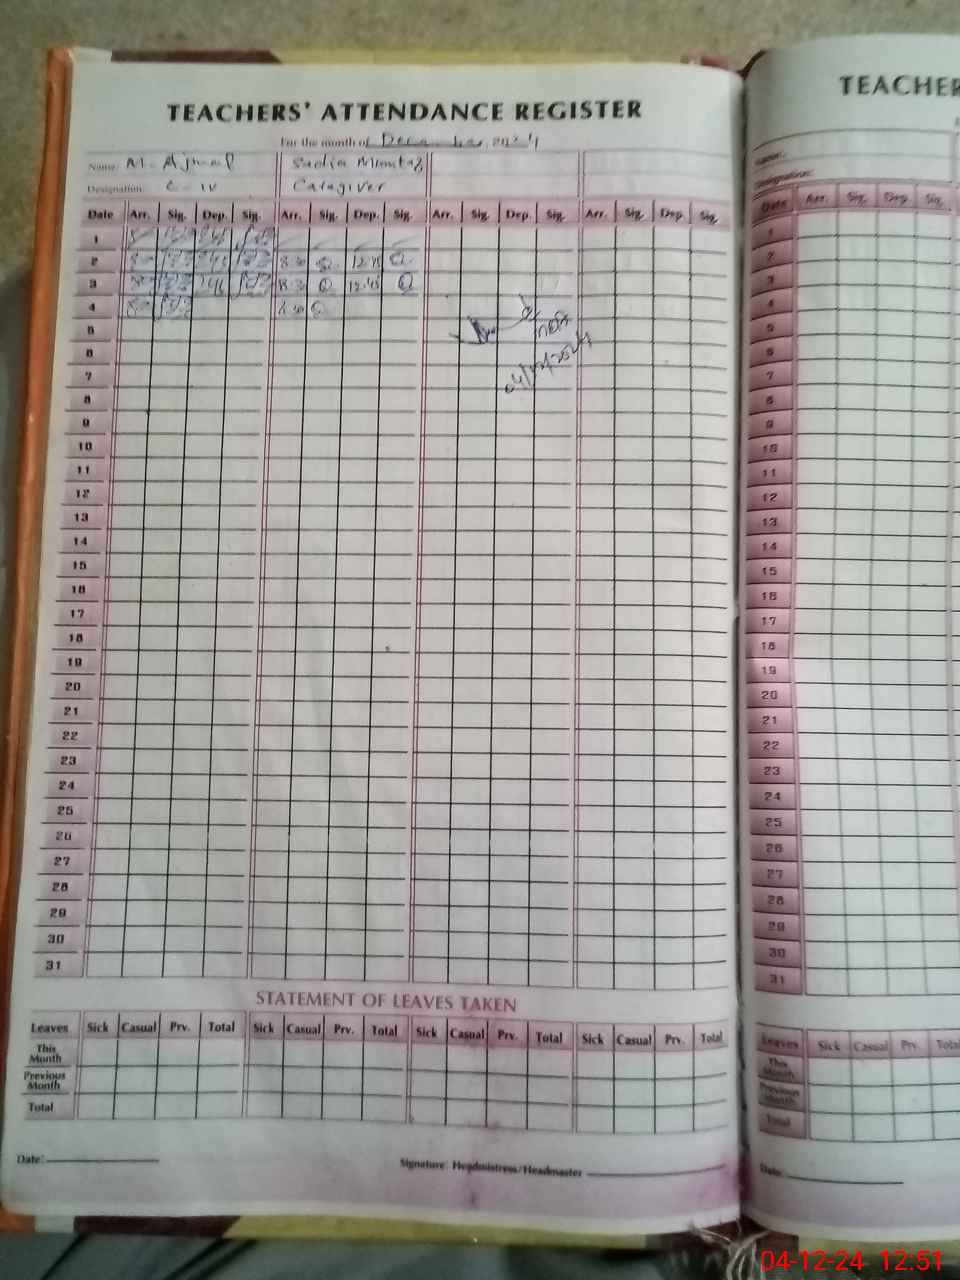 TEACHERS' ATTENDANCE REGISTER
For the month of December, 2024
Name: M. Ajmal Sadia Mumtaz
Designation: C-IV Caregiver
Date Arr. Sig. Dep. Sig. Arr. Sig. Dep. Sig. Arr. Sig. Dep. Sig. Arr. Sig. Dep. Sig.
1
2 8:30 12:45
3 8:30 12:45
4 8:30
5
6
7
04/12/2024
8
9
10
11
12
13
14
15
16
17
18
19
20
21
22
23
24
25
26
27
28
29
30
31
STATEMENT OF LEAVES TAKEN
Leaves Sick Casual Prv. Total Sick Casual Prv. Total Sick Casual Prv. Total Sick Casual Prv. Total
This Month
Previous Month
Total
Date: Signature: Headmistress/Headmaster
TEACHER
Name:
Designation:
Date Arr. Sig. Dep. Sig.
1
2
3
4
5
6
7
8
9
10
11
12
13
14
15
16
17
18
19
20
21
22
23
24
25
26
27
28
29
30
31
Leaves Sick Casual Prv. Total
This Month
Previous Month
Total
Date:
04-12-24 12:51